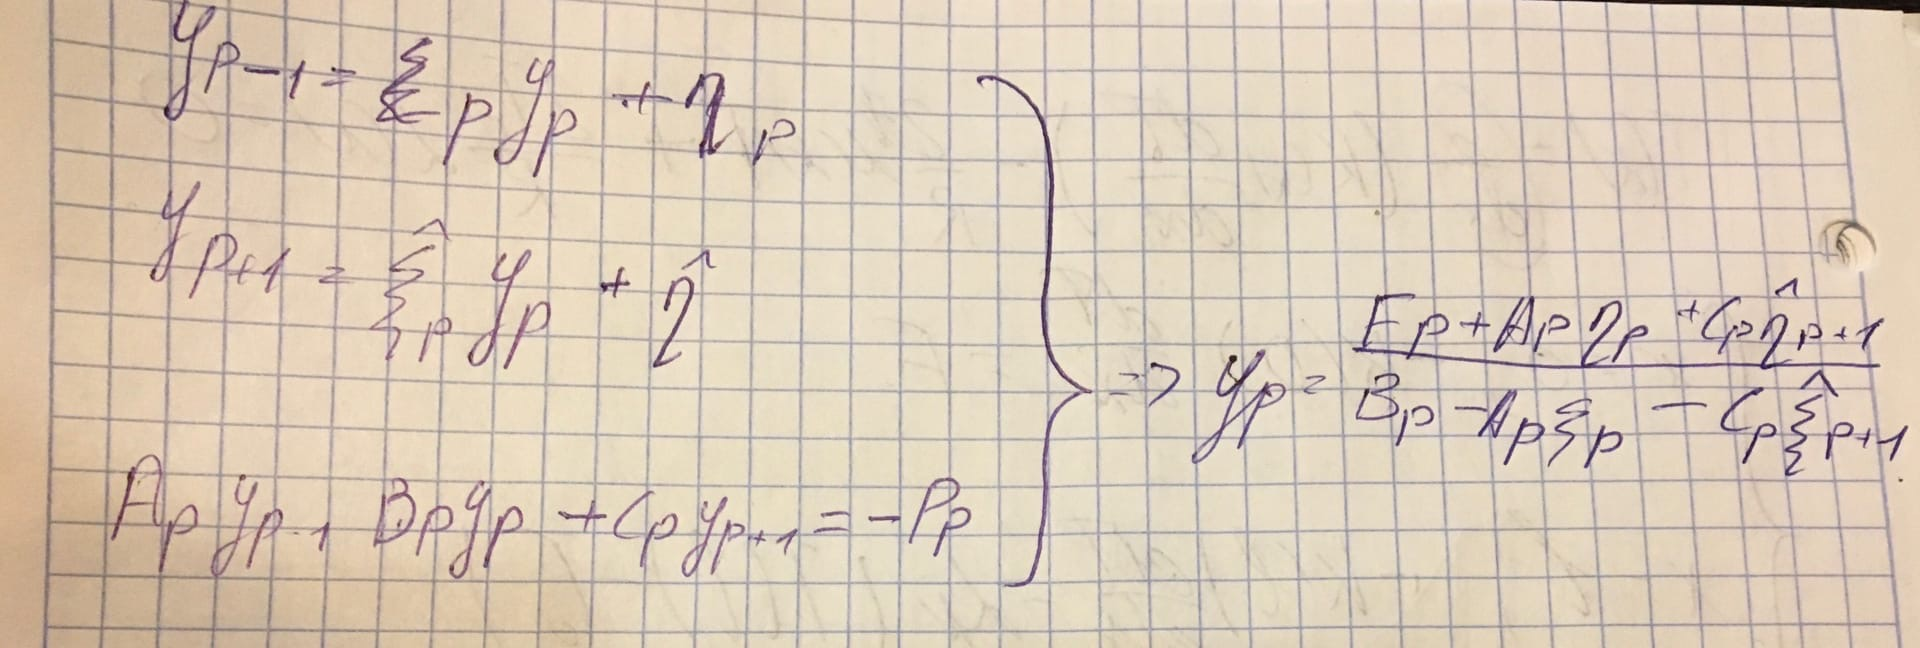 y_{p-1} = ξ_p y_p + η_p
y_{p+1} = ξ̂_p y_p + η̂
A_p y_{p-1} B_p y_p + C_p y_{p+1} = -P_p
=> y_p = \frac{F_p + A_p η_p + C_p η̂_{p+1}}{B_p - A_p ξ_p - C_p ξ̂_{p+1}}